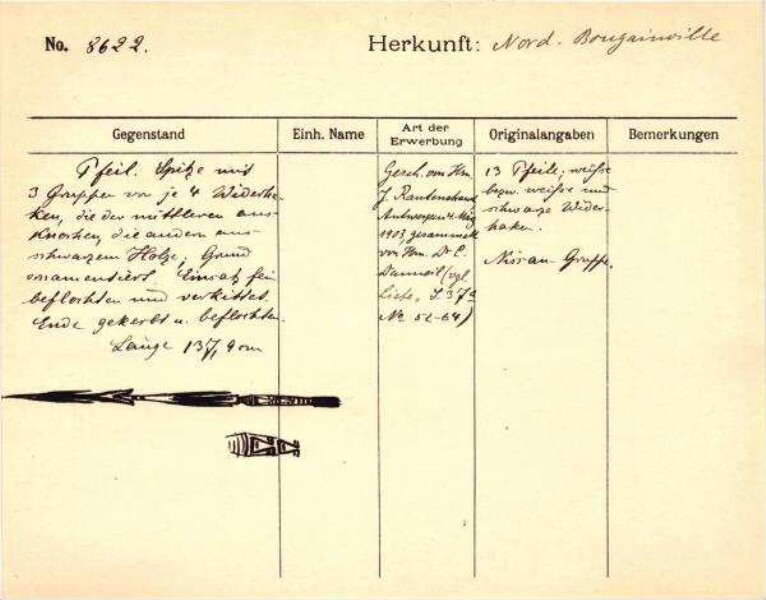 No. 8622.
Herkunft: Nord. Bougainville
Gegenstand
Einh. Name
Art der
Erwerbung
Originalangaben
Bemerkungen
Pfeil. Spitze mit
3 Gruppen von je 4 Widerha-
ken, die der mittleren aus
Knochen, die andern aus
schwarzem Holze; Grund
ornamentiert. Einsatz fein
beflochten und verkittet.
Ende gekerbt u. beflochten.
Länge 137,9 cm
Gesch. von Hrn.
J. Rautenstrauch
Antwerpen 4. Mai
1903, gesammelt
von Hrn. Dr. E.
(vgl.
Liste, S. 37a
No 52-64)
13 Pfeile; weiße
bezw. weiße und
schwarze Wider-
haken.
Nissan-Gruppe.